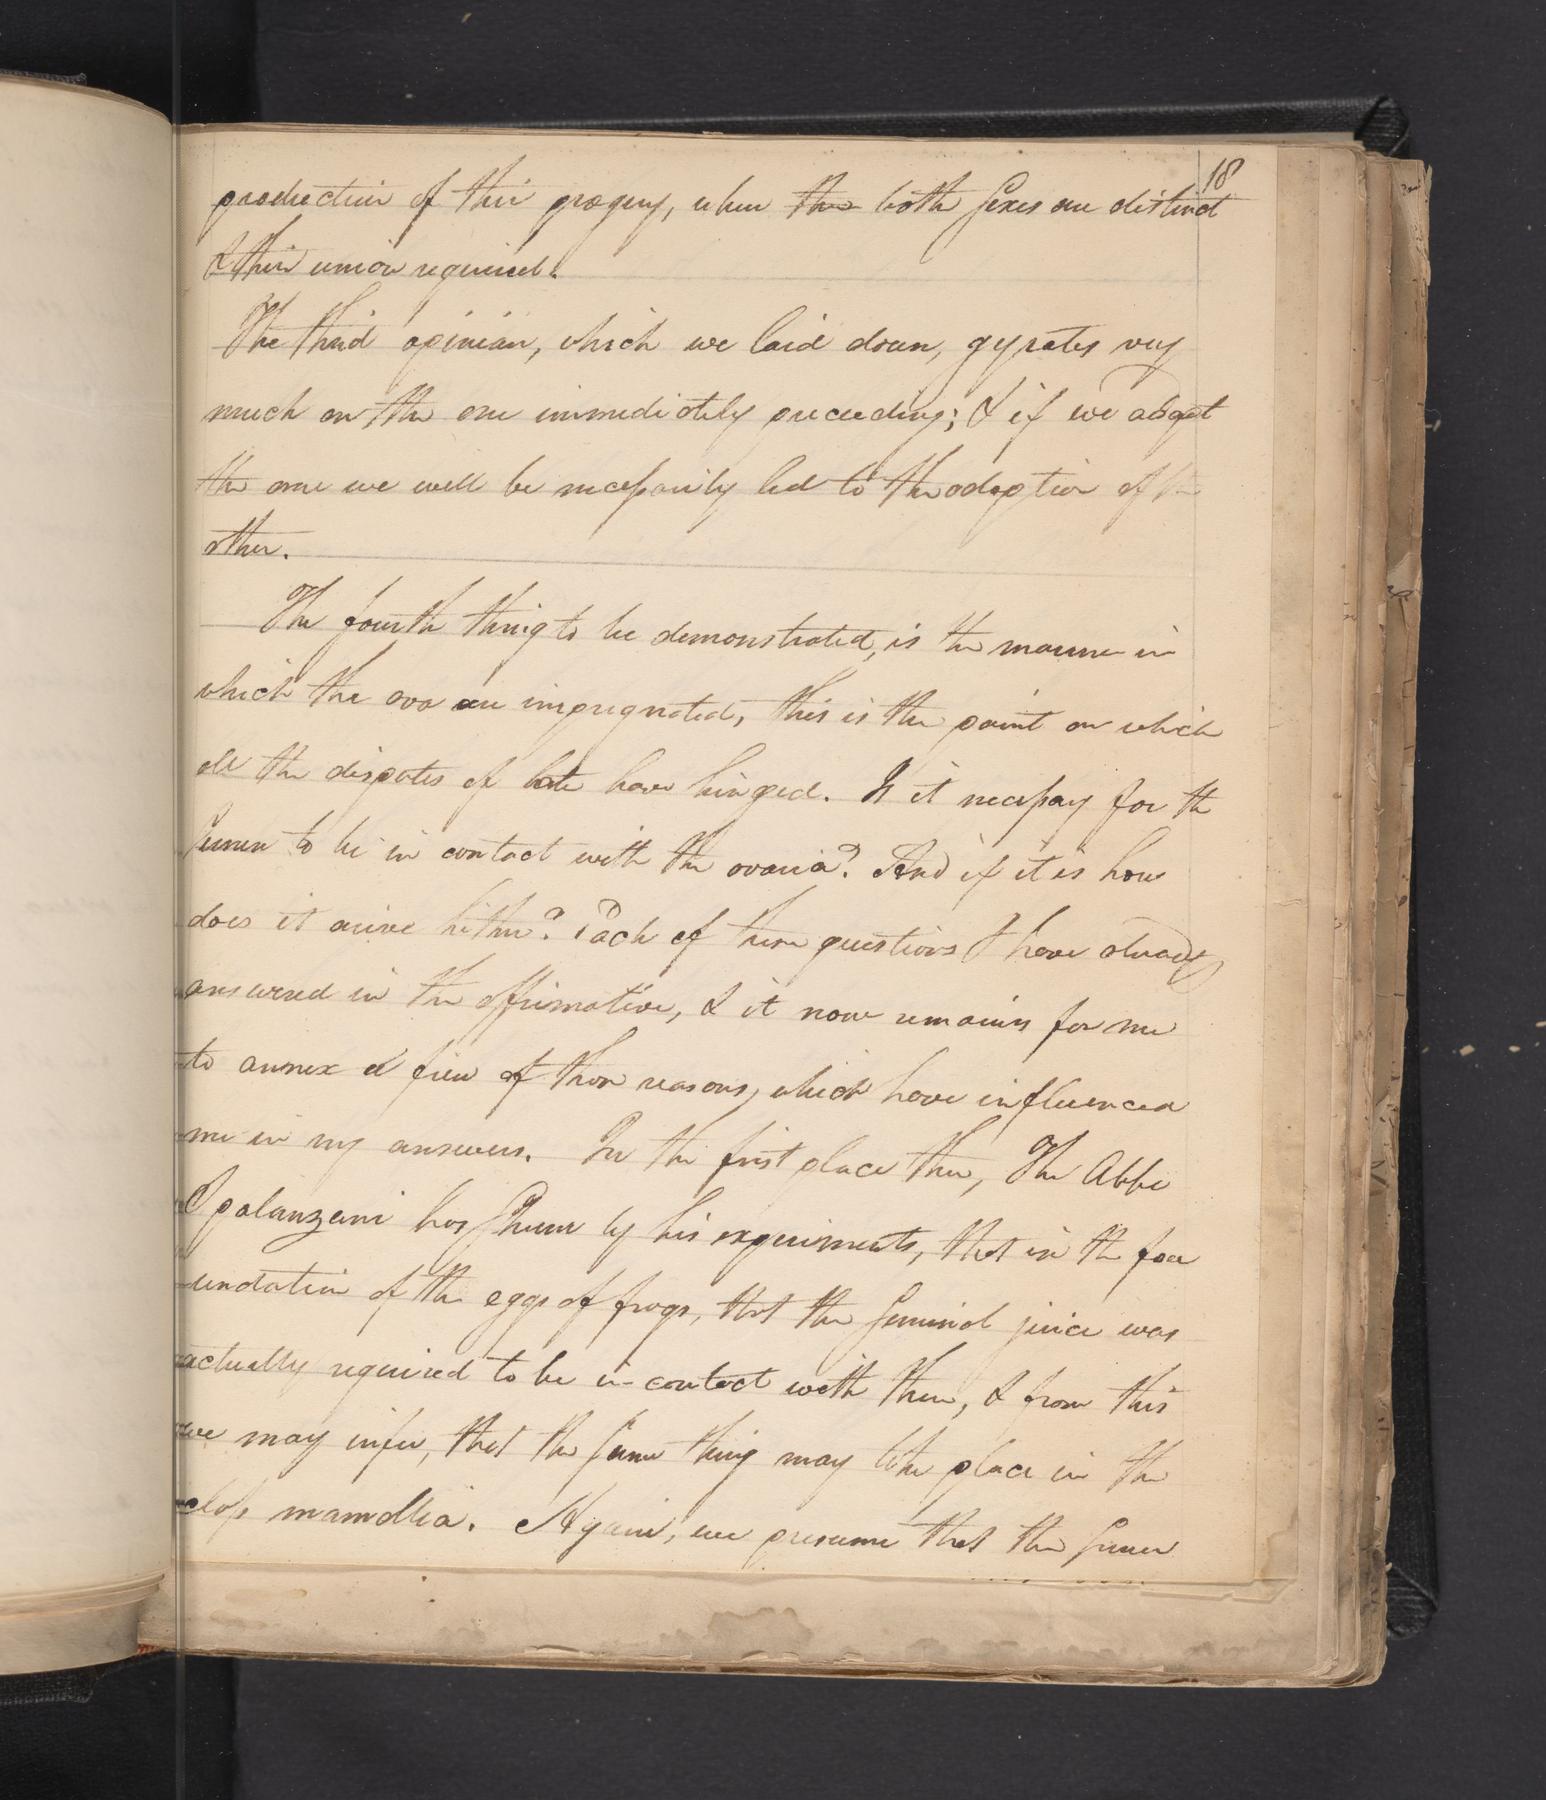 18
production of their progeny, when the both sexes are distinct
& their union required.
The third opinion, which we laid down, gyrates very
much on the one immediately preceeding; & if we adopt
the one we will be necessarily led to the adoption of the
other.
The fourth thing to be demonstrated, is the manner in
which the ova are impregnated, this is the point on which
all the disputes of late have hinged. Is it necessary for the
semen to be in contact with the ovaria? And if it is how
does it arive hither? Each of these questions I have already
answered in the affirmative, & it now remains for me
to annex a few of those reasons, which have influenced
me in my answers. In the first place then, The Abbe
Spalanzani has shewn by his experiments, that in the foe
cundation of the eggs of frogs, that the seminal juice was
actually required to be in contact with them, & from this
we may infer, that the same thing may take place in the
class mammalia. Again, we presume that the semen